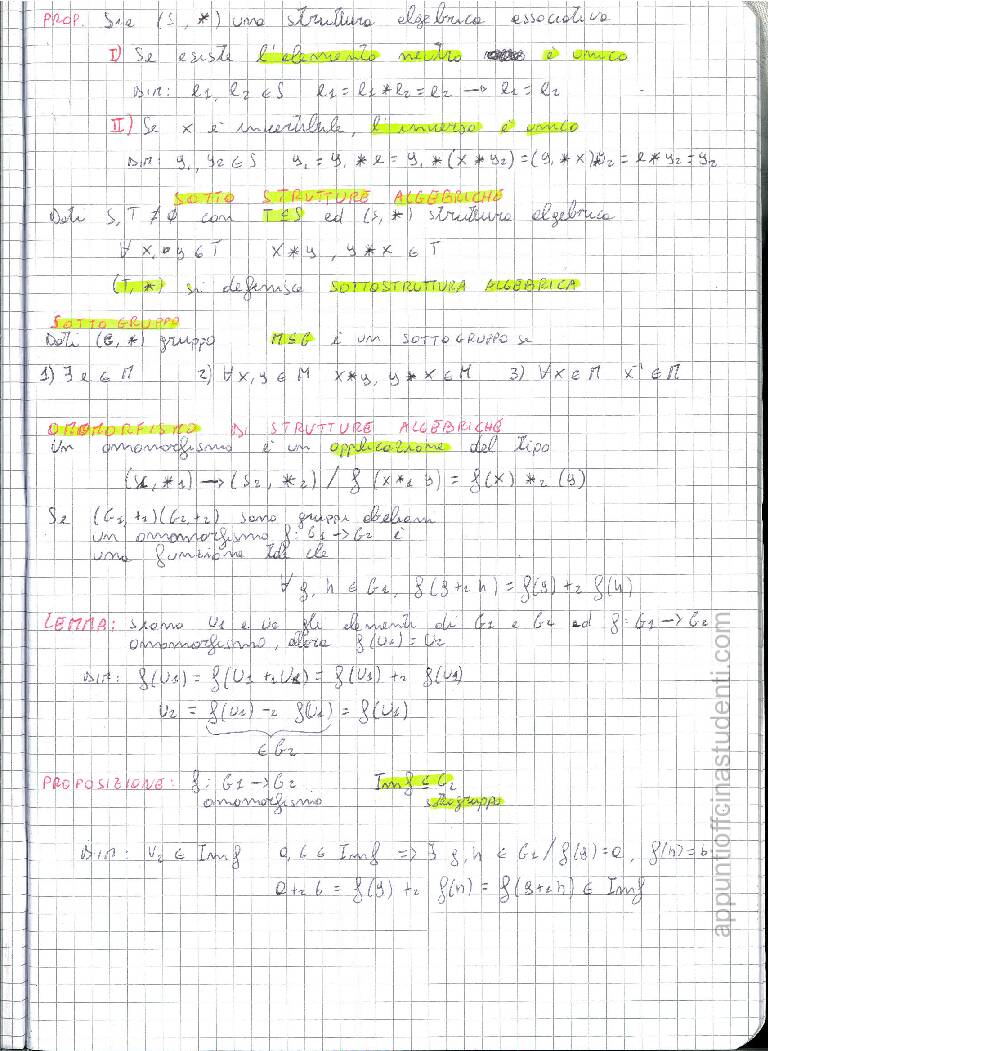 PROP. Sia (S, *) una struttura algebrica associativa
I) Se esiste l'elemento neutro è unico
DIM: e1, e2 ∈ S e1 = e1 * e2 = e2 → e1 = e2
II) Se x è invertibile, l'inverso è unico
DIM: y1, y2 ∈ S y1 = y1 * e = y1 * (x * y2) = (y1 * x) * y2 = e * y2 = y2
SOTTO STRUTTURE ALGEBRICHE
Dati S, T ≠ ∅ con T ⊆ S ed (S, *) struttura algebrica
∀ x, y ∈ T x * y , y * x ∈ T
(T, *) si definisce SOTTOSTRUTTURA ALGEBRICA
SOTTOGRUPPO
Dati (G, *) gruppo M ⊆ G è un SOTTOGRUPPO se
1) ∃ e ∈ M 2) ∀ x, y ∈ M x * y, y * x ∈ M 3) ∀ x ∈ M x⁻¹ ∈ M
OMOMORFISMO DI STRUTTURE ALGEBRICHE
Un omomorfismo è un applicazione del tipo
(S1, *1) → (S2, *2) / f (x *1 y) = f(x) *2 (y)
Se (G1, +1) (G2, +2) sono gruppi abeliani
un omomorfismo f: G1 → G2 è
una funzione tale che
∀ g, h ∈ G1, f(g +1 h) = f(g) +2 f(h)
LEMMA: siano U1 e U2 gli elementi di G1 e G2 ed f: G1 → G2
omomorfismo, allora f(U1) = U2
DIM: f(U1) = f(U1 +1 U1) = f(U1) +2 f(U1)
U2 = f(U1) -2 f(U1) = f(U1)
∈ G2
PROPOSIZIONE: f: G1 → G2 Imf ⊆ G2
omomorfismo sottogruppo
DIM: U2 ∈ Imf a, b ∈ Imf => ∃ g, h ∈ G1 / f(g) = a, f(h) = b
a +2 b = f(g) +2 f(h) = f(g +1 h) ∈ Imf
appuntioffcinastudenti.com